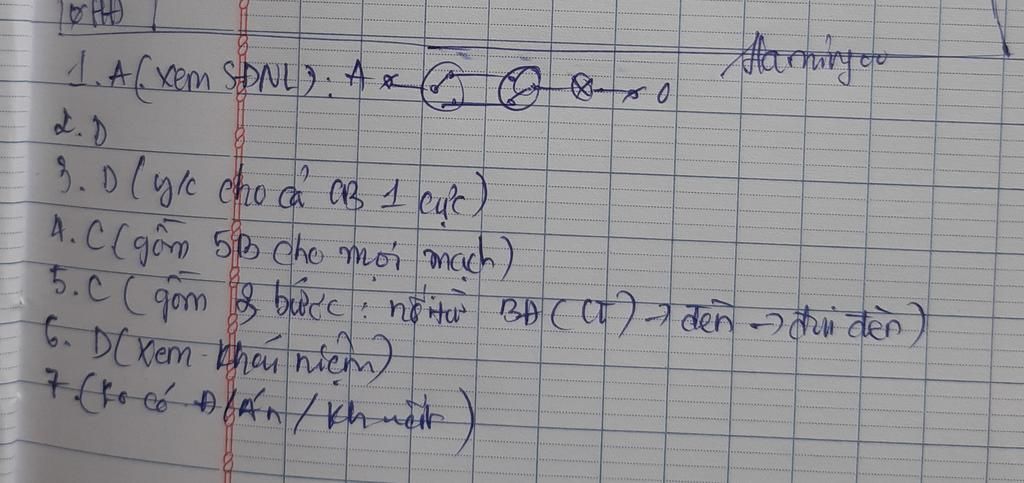 Flamingo
1. A (xem SĐNL): A O
2. D
3. D (y/c cho cả CB 1 cực)
4. C (gồm 5B cho mọi mạch)
5. C (gồm 3 bước: nối từ BĐ (CT) → đèn → đui đèn)
6. D (xem khái niệm)
7. (Ko có Đ/Án /